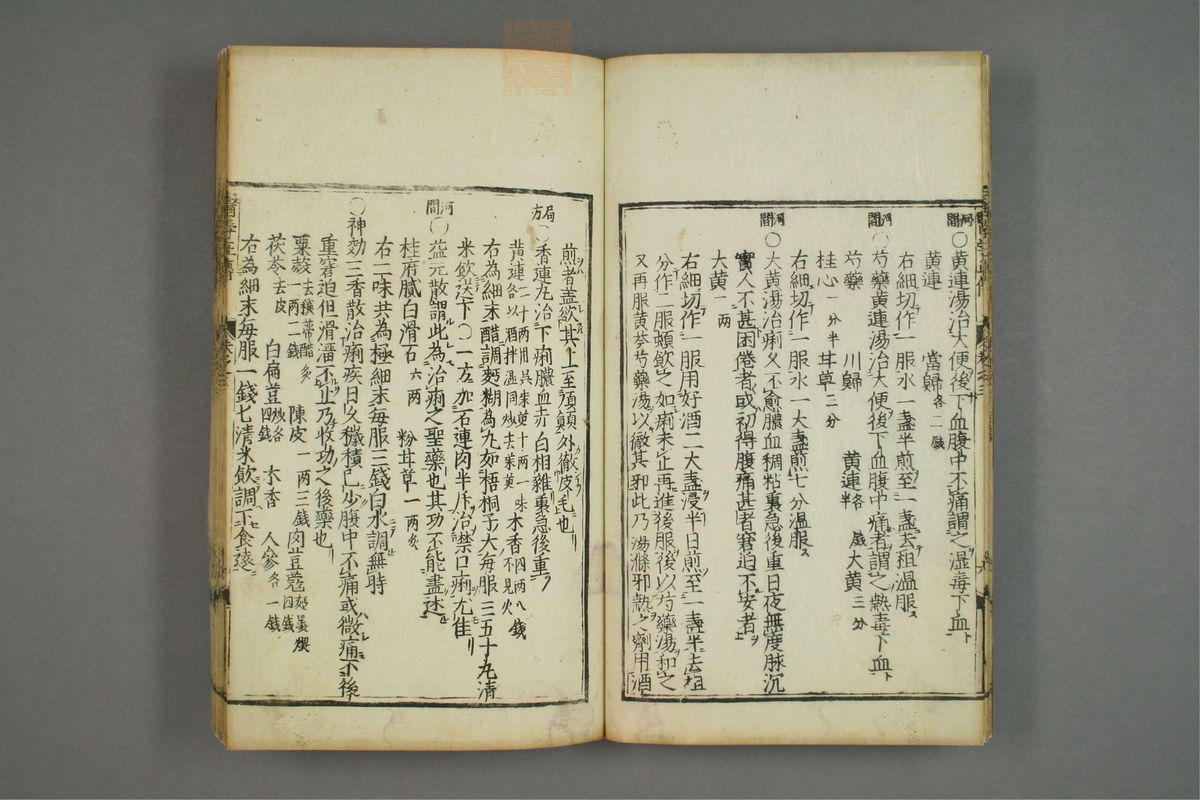 河間
○黃連湯治大便後下血腹中不痛謂之湿毒下血
黃連　當歸各二錢
右細切作一服水一盞半煎至一盞去粗温服
河間
○芍藥黃連湯治大便後下血腹中痛者謂之熱毒下血
芍藥　川歸　黃連各半錢　大黃三分
桂心一分半　甘草二分
右細切作一服水一大盞煎七分温服
河間
○大黃湯治痢久不愈膿血稠粘裏急後重日夜無度脉沉
實人不甚困倦者或初得腹痛甚者窘迫不安者
大黃一兩
右細切作一服用好酒二大盞浸半日煎至一盞半去粗
分作二服頓飲之如痢未止再進後服後以芍藥湯和之
又再服黃芩芍藥湯以徹其邪此乃湯滌邪熱之劑用酒
煎者盖欲其上至頭顛外徹皮毛也
局方
○香連丸治下痢膿血赤白相雜裏急後重
黃連二十兩用吳茱萸十兩一味各以酒拌湿同炒去茱萸　木香四兩八錢不見火
右為細末醋調麪糊為丸如梧桐子大每服三五十丸清
米飲送下○一方加石連肉半斤治禁口痢尤佳
河間
○益元散謂此為治痢之聖藥也其功不能盡述
桂府膩白滑石六兩　粉甘草一兩炙
右二味共為極細末每服三錢白水調無時
○神効三香散治痢疾日久穢積已少腹中不痛或微痛不後
重窘迫但滑溜不止乃收功之後藥也
粟殼去穰蒂醋炙一兩二錢　陳皮一兩三錢　肉荳蔻麪裹煨四錢
茯苓去皮　白扁荳炒各四錢　木香　人參各一錢
右為細末每服一錢七清米飲調下食遠